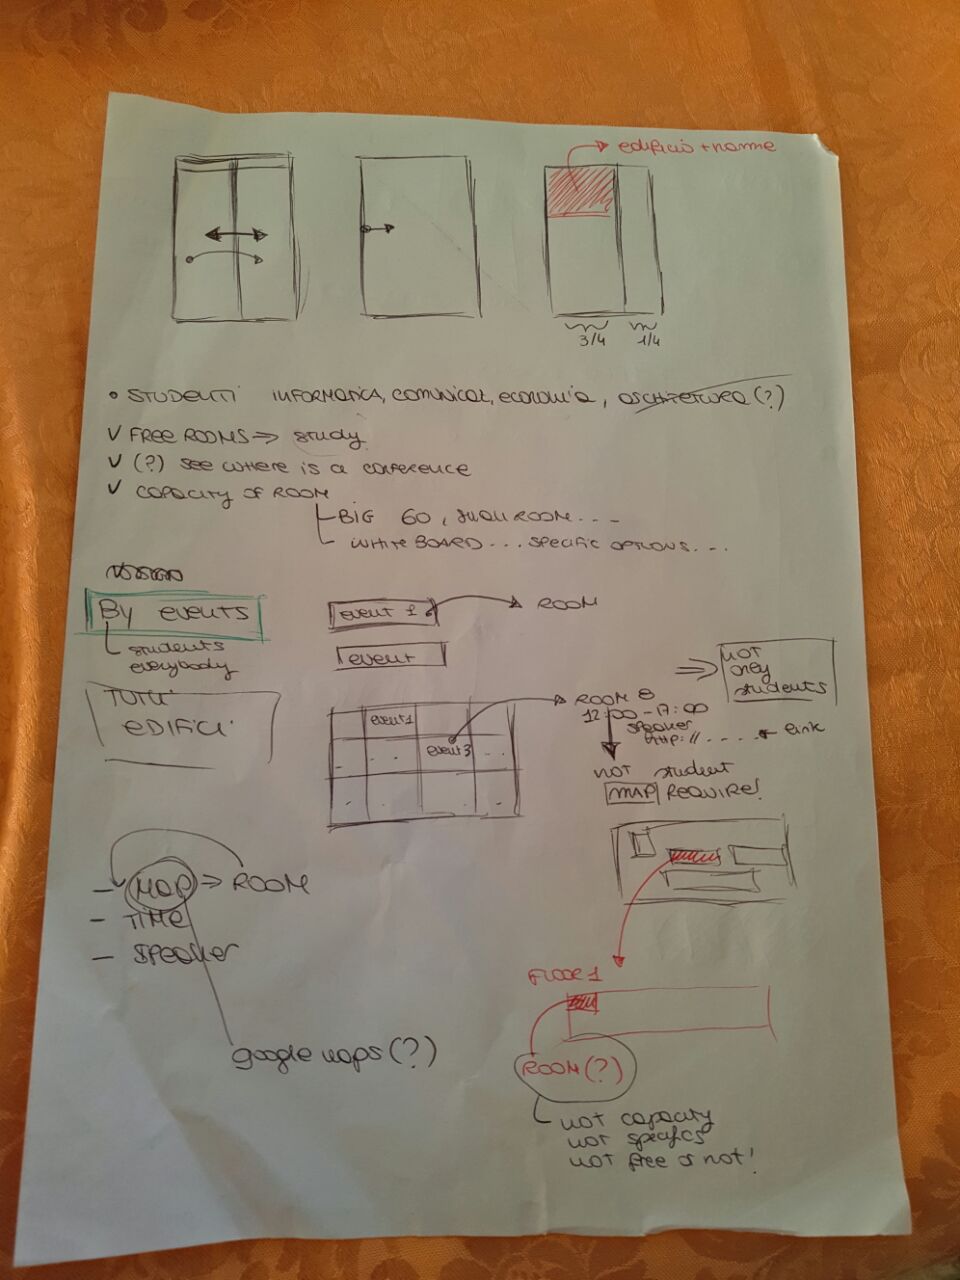 edificio + nome
3/4 1/4
• STUDENTI INFORMATICA, COMUNICAZ, ECONOMIA, ARCHITETTURA (?)
✓ FREE ROOMS => study
✓ (?) SEE WHERE IS a CONFERENCE
✓ CAPACITY OF ROOM
BIG 60, SMALL ROOM...-
WHITEBOARD... SPECIFIC OPTIONS...
By events
students
everybody
event 1 ROOM
event
NOT
only
students
TUTTI
EDIFICI
event1
event3
ROOM 8
12:00-17:00
speaker
http://..... link
NOT student
MAP REQUIRE!
- MAP => ROOM
- TIME
- SPEAKER
google maps (?)
FLOOR 1
ROOM (?)
NOT capacity
NOT specifics
NOT free or not!